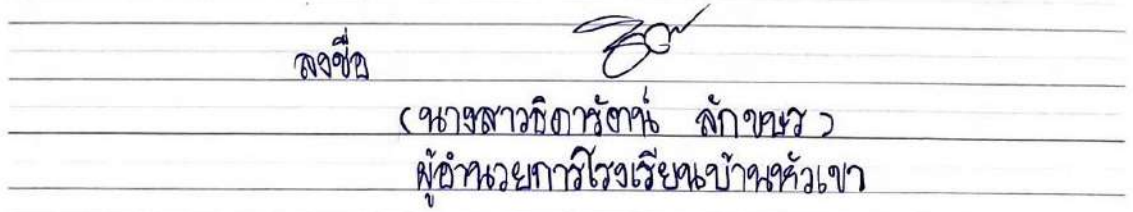 ลงชื่อ
(นางสาวธิดารัตน์ ลักขษร)
ผู้อำนวยการโรงเรียนบ้านหัวเขา